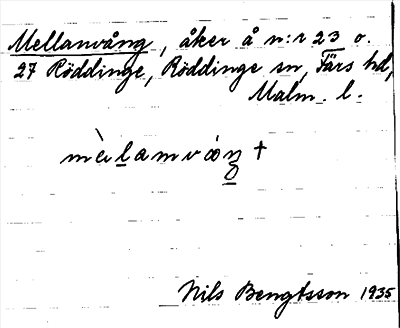 Mellanvång, åker å n:r 23 o.
27 Röddinge, Röddinge sn, Färs hd,
Malm. l.
Nils Bengtsson 1935